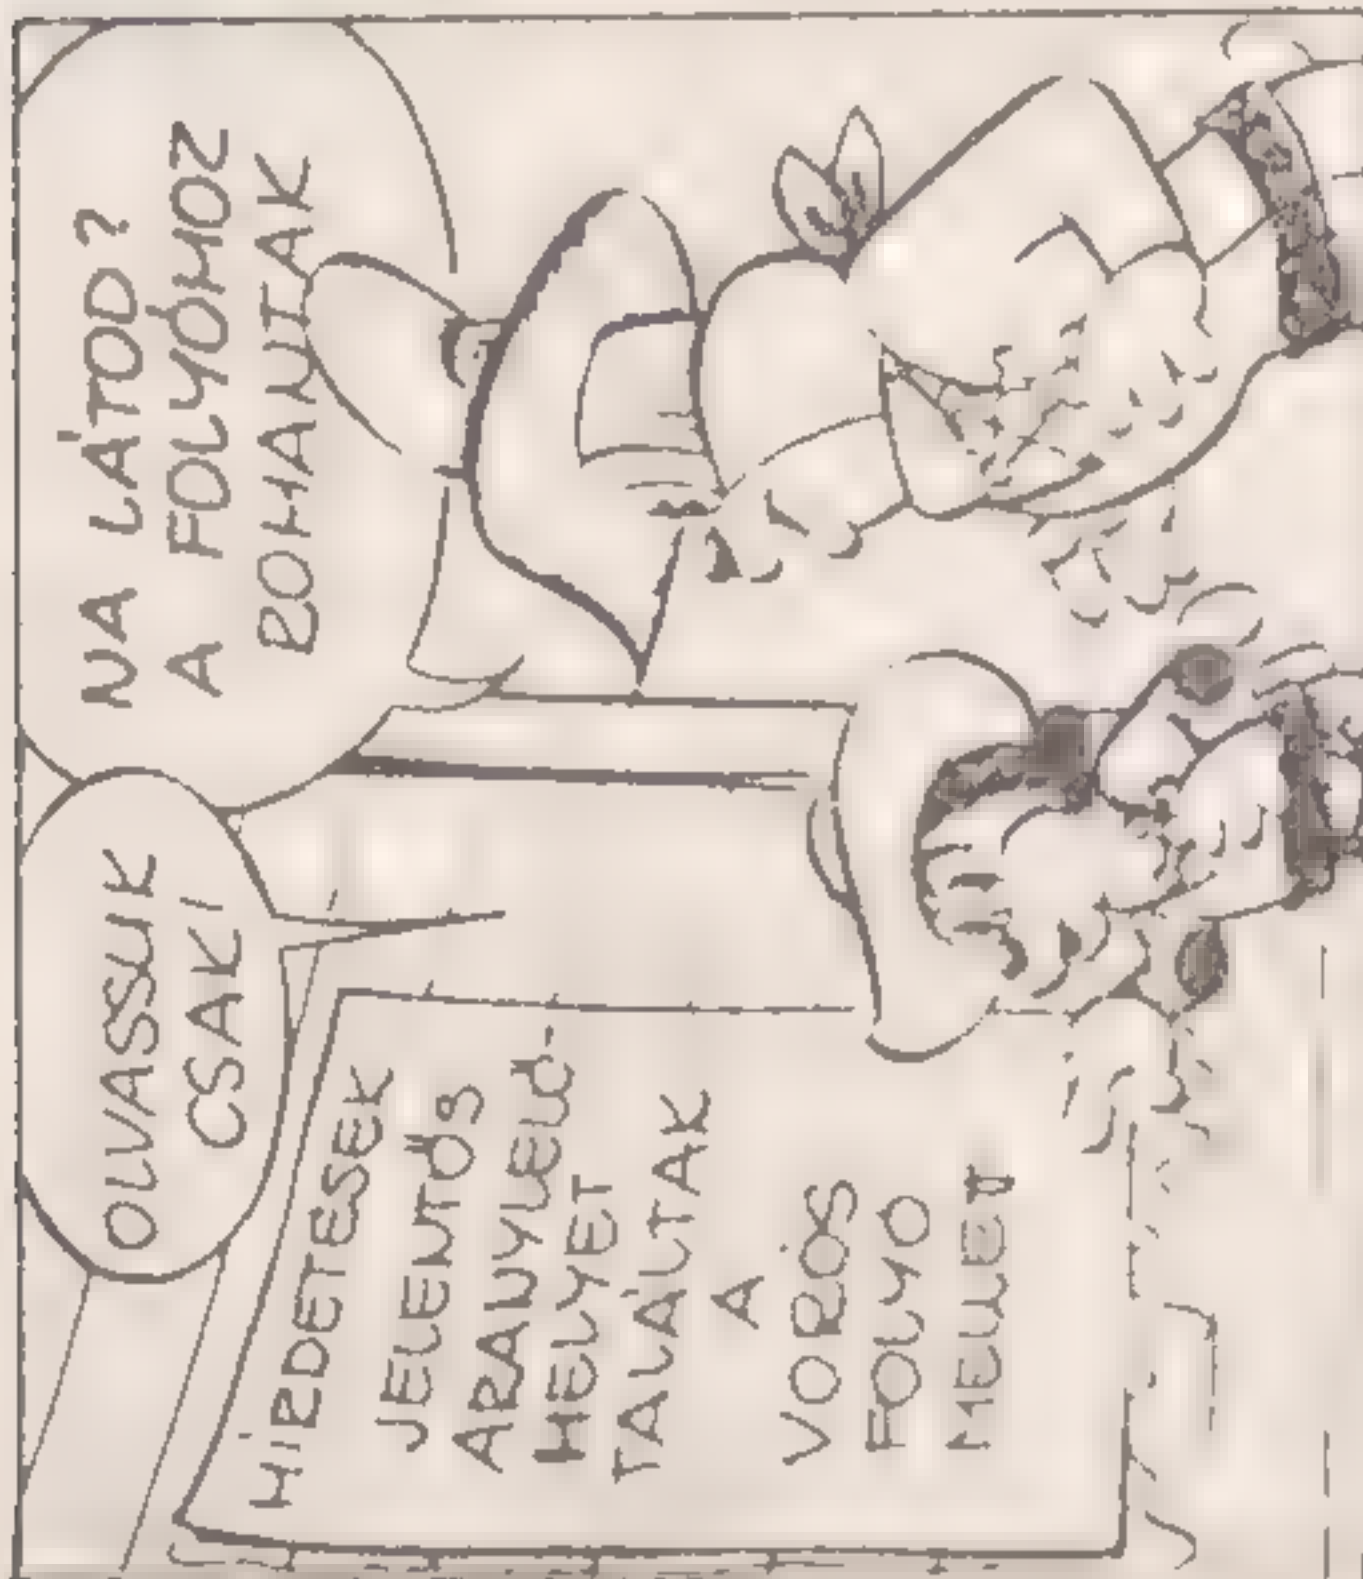 OLVASSUK
CSAK!
NA LÁTOD?
A FOLYÓHOZ
ROHANTAK
HIRDETESEK
JELENTŐS
ARANYLELŐ-
HELYET
TALÁLTAK
A
VÖRÖS
FOLYÓ
MELLETT